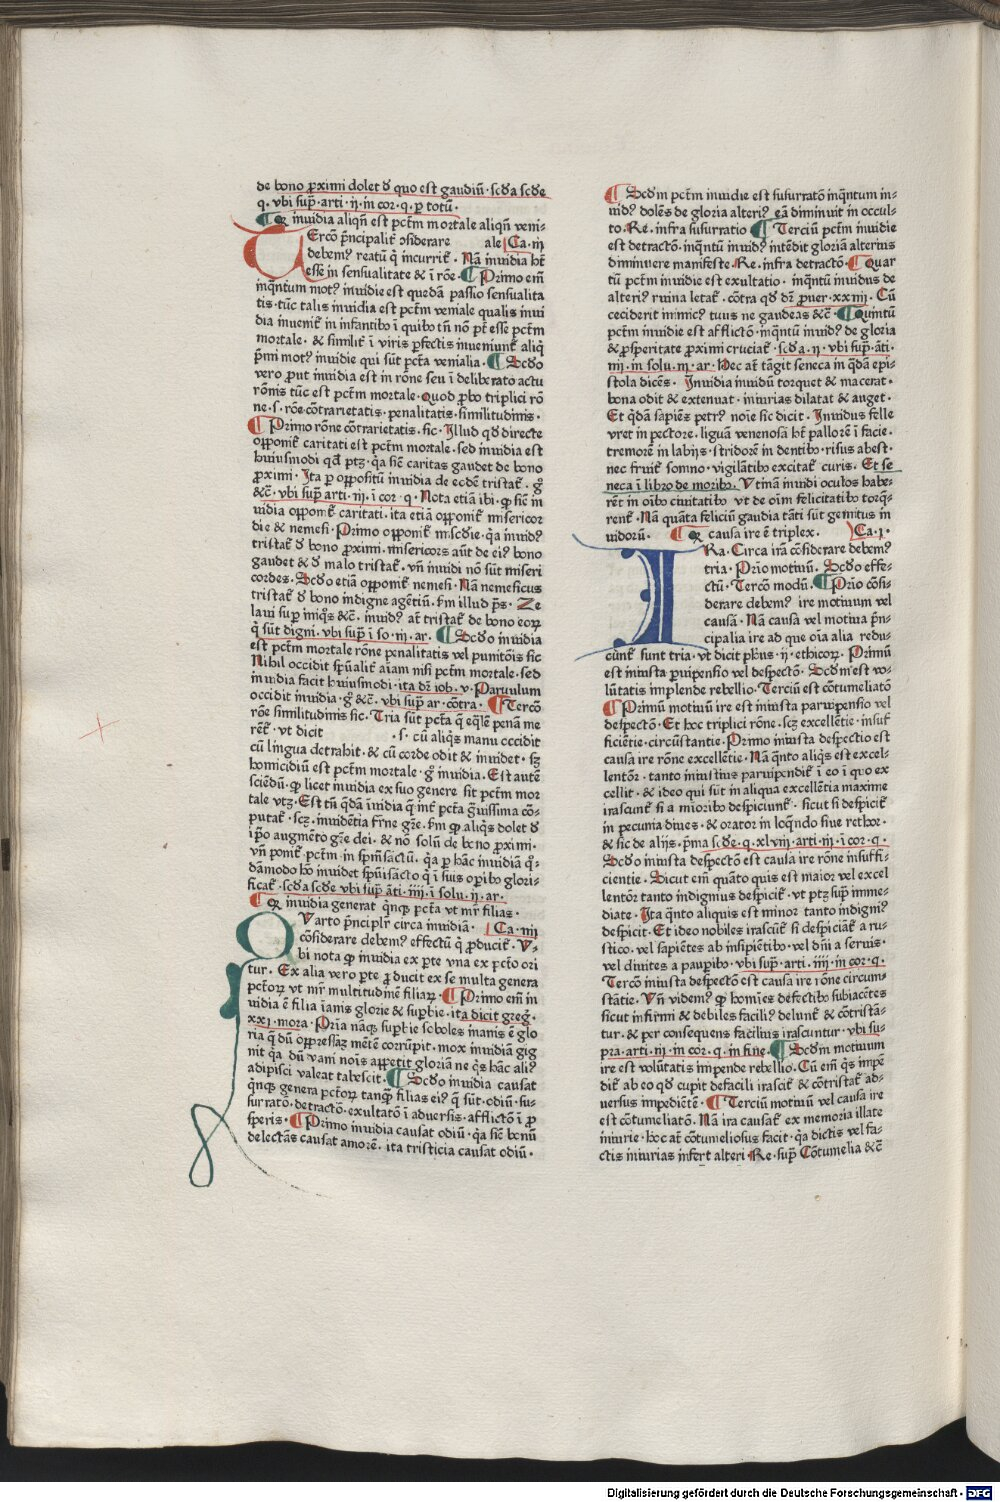 de bono ꝓximi dolet ď quo est gaudiū · scďa scďe
q. vbi sup̄ · arti · ij · in cor · q · ꝑ totū ·
¶ Qꝫ inuidia aliqn̄ est pctm̄ mortale aliqn̄ veni-
TErcō p̄ncipalit̉ ɔsiderare ale Ca · iij
debem⁹ reatū q̄ incurrit̉ · Nā inuidia ht̄
esse in sensualitate & ī rōe · ¶ Primo em̄
inq̄ntum mot⁹ inuidie est quedā passio sensualita
tis · tūc talis inuidia est pctm̄ veniale qualis inui
dia inuenit̉ in infantibꝫ ī quibꝫ tn̄ nō pt̄ esse pctm̄
mortale · & similit̉ ī viris ꝑfectis inueniunt̉ aliq̄
p̄mi mot⁹ inuidie qui sūt pctā venialia · ¶ Scďo
vero ꝓut inuidia est in rōne seu ī deliberato actu
rōnis tūc est pctm̄ mortale · quod ꝓbo triplici rō
ne · s · rōe cōtrarietatis · penalitatis · similitudinis ·
¶ Primo rōne cōtrarietatis · sic · Illud qď directe
opponit̉ caritati est pctm̄ mortale · sed inuidia est
huiusmodi qď ptꝫ · q̇a sic̄ caritas gaudet de bono
ꝓximi · Ita ꝑ oppositū inuidia de eodē tristat̉ · g̊
&c̄ · vbi sup̄ arti · iij · ī cor · q · Nota etiā ibi · ꝙ sic̄ in
uidia opponit̉ caritati · ita etiā opponit̉ misericor
die & nemesi · Primo opponit̉ mis̄cďie · q̇a inuid⁹
tristat̉ ď bono ꝓximi · misericors aūt de ei⁹ bono
gaudet & ď malo tristat̉ · vn̄ inuidi nō sūt miseri
cordes · Scďo etiā opponit̉ nemesi · Nā nemeficus
tristat̉ ď bono indigne agētiū · scďm illud ps̄ · Ze
laui sup̄ iniq̊s &c̄ · inuid⁹ at̄ tristat̉ de bono eoꝝ
q̇ sūt digni · vbi sup̄ ī so · iij · ar · ¶ Scďo inuidia
est pctm̄ mortale rōne penalitatis vel punitōis sic
Nihil occidit sp̄ualit̉ aīam nisi pctm̄ mortale · sed
inuidia facit huiusmodi · ita dr̄ iob · v · Paruulum
occidit inuidia · g̊ &c̄ · vbi sup̄ ar · cōtra · ¶ Tercō
rōne similitudinis sic · Tria sūt pctā q̄ eq̄lē penā me
rēt̉ · vt dicit · s · cū aliq̇s manu occidit
cū lingua detrahit · & cū corde odit & inuidet · sꝫ
homicidiū est pctm̄ mortale · g̊ inuidia · Est autē
sciēdū · ꝙ licet inuidia ex suo genere sit pctm̄ mor
tale vtꝫ · Est tn̄ q̄dā īuidia q̄ int̉ pctā g̊uissima cō-
putat̉ · scꝫ · inuidētia fr̄ne gr̄e · scďm ꝙ aliq̇s dolet ď
ip̄o augmēto gr̄e dei · & nō solū de bono ꝓximi ·
vn̄ ponit̉ · pctm̄ in sp̄m̄ sāctū · q̇a ꝑ hāc inuidiā q̊-
dāmodo hō inuidet sp̄ui sācto q̇ ī suis oꝑibꝫ glori-
ficat̉ · scďa scďe vbi sup̄ āti · iiij · ī solu · ij · ar ·
¶ Qꝫ inuidia generat q̇nqꝫ pctā vt mr̄ filias ·
QVarto p̄ncipl̉r circa inuidiā · Ca · iiij
cōsiderare debem⁹ effectū q̄ ꝓducit̉ · V-
bi nota ꝙ inuidia ex ꝑte vna ex pctō ori
tur · Ex alia vero ꝑte ꝓducit ex se multa genera
pctōꝝ vt mr̄ multitudinē filiaꝝ · ¶ Primo em̄ in
uidia ē filia īanis glorie & supbie · ita dicit greg̊ ·
xxxj · mora · Pria nāqꝫ supbie soboles inanis ē glo
ria q̄ dū oppressaꝫ mētē corrūpit · mox inuidiā gig
nit q̇a dū vani nois appetit gloriā ne q̇s hāc ali⁹
adipisci valeat tabescit · ¶ Scďo inuidia causat
q̇nqꝫ genera pctōꝝ tanqꝫ filias ei⁹ q̄ sūt · odiū · su-
surratō · detractō · exultatō ī aduersis · afflictō ī ꝓ
speris · ¶ Primo inuidia causat odiū · q̇a sic̄ bonū
delectās causat amorē · ita tristicia causat odiū ·
¶ Scďm pctm̄ inuidie est susurratō inq̄ntum in-
uid⁹ dolēs de gloria alteri⁹ eā diminuit in occul-
to · Re · infra susurratio ¶ Terciū pctm̄ inuidie
est detractō · inq̄ntū inuid⁹ intēdit gloriā alterius
diminuere manifeste · Re · infra detractō · ¶ Quar
tū pctm̄ inuidie est exultatio · inq̄ntū inuidus de
alteri⁹ ruina letat̉ · cōtra qď dr̄ ꝓuer · xxiiij · Cū
ceciderit inimic⁹ tuus ne gaudeas &c̄ · ¶ Quintū
pctm̄ inuidie est afflictō · inq̄ntū inuid⁹ de gloria
& ꝓsperitate ꝓximi cruciat̉ · scďa · ij · vbi sup̄ · āti ·
iiij · in solu · iij · ar · Nec at̄ tāgit seneca in q̄dā epi-
stola dicēs · Inuidia inuidū torquet & macerat ·
bona odit & extenuat · iniurias dilatat & auget ·
Et q̇dā sapiēs petr⁹ noīe sic dicit · Inuidus felle
vret in pectore · liguā venenosā ht̄ pallorē ī facie ·
tremorē in labijs · stridorē in dentibꝫ · risus abest ·
nec fruit̉ somno · vigilātibꝫ excitat̉ curis · Et se
neca ī libro de moribꝫ · Vtinā inuidi oculos habe-
rēt in oībꝫ ciuitatibꝫ vt de oīm felicitatibꝫ torq̄-
rent̉ · Nā quāta feliciū gaudia tāti sūt gemitus in
uidorū · ¶ Qꝫ causa ire ē triplex · Ca · j ·
IRa · Circa irā cōsiderare debem⁹
tria · Prīo motiuū · Scďo effe-
ctū · Tercō modū · ¶ Prīo cōsi-
derare debem⁹ ire motiuum vel
causā · Nā causa vel motiua p̄n-
cipalia ire ad que oīa alia redu-
cūnt̉ sunt tria · vt dicit ph̄us · ij · ethicoꝝ · Primū
est iniusta ꝑuipensio vel despectō · Scďm est vo-
lūtatis implende rebellio · Terciū est cōtumeliatō
¶ Primū motiuū ire est iniusta paruipensio vel
despectō · Et hoc triplici rōne · scꝫ excellētie · insuf
ficiētie · circūstantie · Primo iniusta despectio est
causa ire rōne excellētie · Nā q̄nto aliq̇s est excel-
lentōr · tanto iniustius paruipendit̉ ī eo ī quo ex
cellit · & ideo qui sūt in aliqua excellētia maxime
irascunt̉ si a mīoribꝫ despiciunt̉ · sicut si despicit̉
in pecunia diues · & orator in loq̄ndo siue rethor ·
& sic de alijs · p̄ma scďe · q · xlvij · arti · iij · ī cor · q ·
Scďo iniusta despectō est causa ire rōne insuffi-
cientie · Sicut em̄ quāto quis est maior vel excel
lentōr tanto indignius despicit̉ · vt ptꝫ sup̄ imme-
diate · Ita q̄nto aliquis est minor tanto indigni⁹
despicit̉ · Et ideo nobiles irascūt̉ si despiciāt̉ a ru-
stico · vel sapiētes ab insipiētibꝫ · vel dn̄i a seruis ·
vel diuites a pauꝑibꝫ · vbi sup̄ · arti · iiij · in cor · q ·
Tercō iniusta despectō est causa ire rōne circum-
stātie · Vn̄ videm⁹ ꝙ homīes defectibꝫ subiacētes
sicut infirmi & debiles facili⁹ delunt̉ & cōtristā-
tur · & per consequens facilius irascuntur · vbi su-
pra · arti · iij · in cor · q · in fine · ¶ Scďm motiuum
ire est volūtatis impende rebellio · Cū em̄ q̇s impe
dit̉ ab eo qď cupit defacili irascit̉ & cōtristat̉ ad-
uersus impediētē · ¶ Terciū motiuū vel causa ire
est cōtumeliatō · Nā ira causat̉ ex memoria illate
iniurie · hoc at̄ cōtumeliosus facit · q̇a dictis vel fa-
ctis iniurias infert alteri Re · sup̄ Cōtumelia &c̄
Digitalisierung gefördert durch die Deutsche Forschungsgemeinschaft - DFG